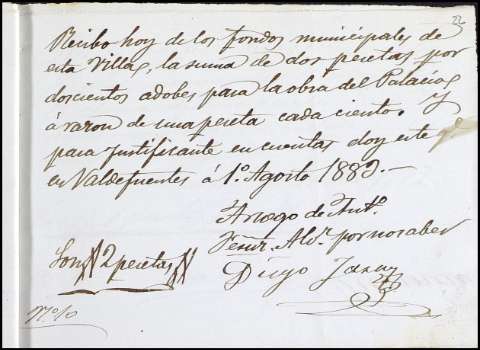 22
Recibo hoy de los fondos municipales de
esta Villa, la suma de dos pesetas por
doscientos adobes para la obra del Palacio, y
á razon de una peseta cada ciento.
para justificante en cuentas doy este
en Valdefuentes á 1º. Agosto 1883.—
Arruego de Antº.
por no saber
Son 2 pesetas
Diego